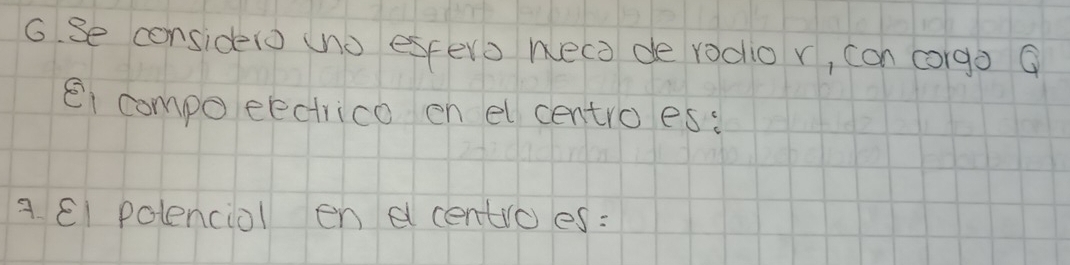 6. Se considera una esfera hueca de radio r, con carga Q
El campo electrico en el centro es:
7. El potencial en el centro es: